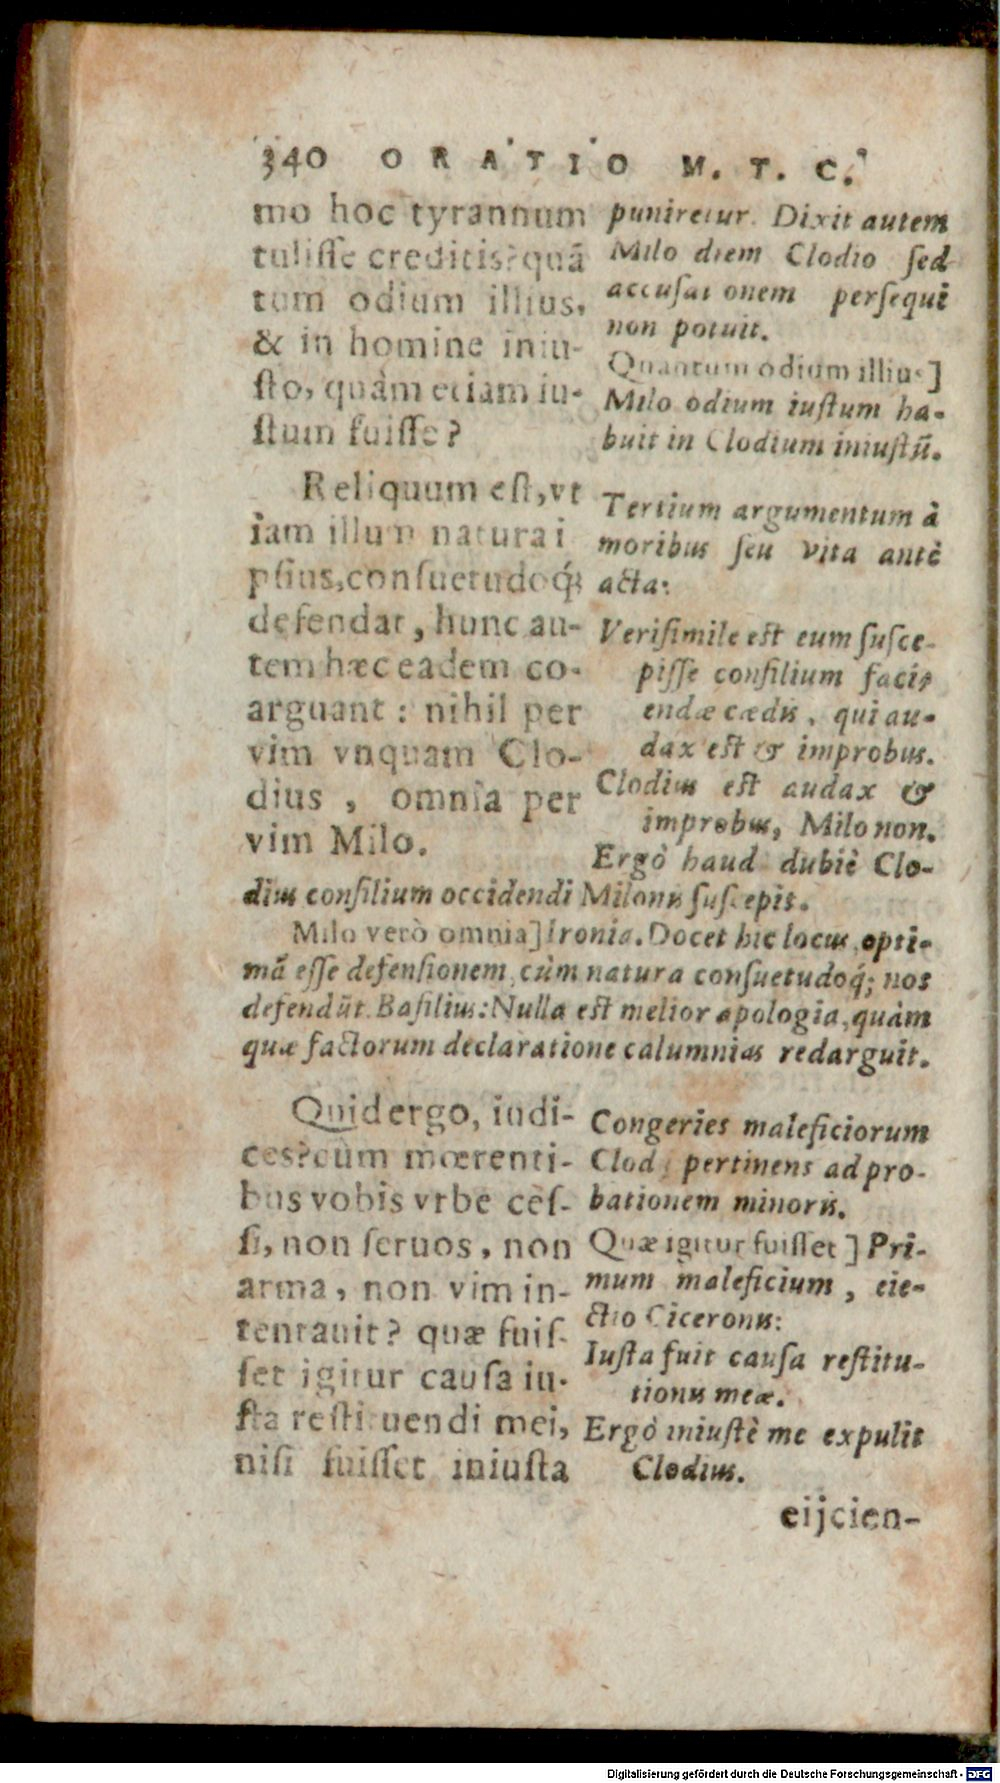 340 ORATIO M. T. C.
mo hoc tyrannum
tulisse creditis? quã
tum odium illius,
& in homine iniu-
sto, quàm etiam iu-
stum fuisse?
Reliquum est, vt
iam illum natura i
psius, consuetudoq́;
defendat, hunc au-
tem hæc eadem co-
arguant: nihil per
vim vnquam Clo-
dius, omnia per
vim Milo.
puniretur. Dixit autem
Milo diem Clodio sed
accusationem persequi
non potuit.
Quantum odium illius]
Milo odium iustum ha-
buit in Clodium iniustũ.
Tertium argumentum à
moribus seu vita antè
acta:
Verisimile est eum susce-
pisse consilium faci-
endæ cædis, qui au-
dax est & improbus.
Clodius est audax &
improbus, Milo non.
Ergò haud dubiè Clo-
dius consilium occidendi Milonis suscepit.
Milo verò omnia] Ironia. Docet hic locus opti-
mã esse defensionem, cùm natura consuetudoq́; nos
defendũt. Basilius: Nulla est melior apologia, quàm
quæ factorum declaratione calumnias redarguit.
Quid ergo, iudi-
ces? cùm mœrenti-
bus vobis vrbe ces-
si, non seruos, non
arma, non vim in-
tentauit? quæ fuis-
set igitur causa iu-
sta restituendi mei,
nisi fuisset iniusta
Congeries maleficiorum
Clod; pertinens ad pro-
bationem minoris.
Quæ igitur fuisset] Pri-
mum maleficium, eie-
ctio Ciceronis:
Iusta fuit causa restitu-
tionis meæ.
Ergò iniustè me expulit
Clodius.
eijcien-
Digitalisierung gefördert durch die Deutsche Forschungsgemeinschaft - DFG